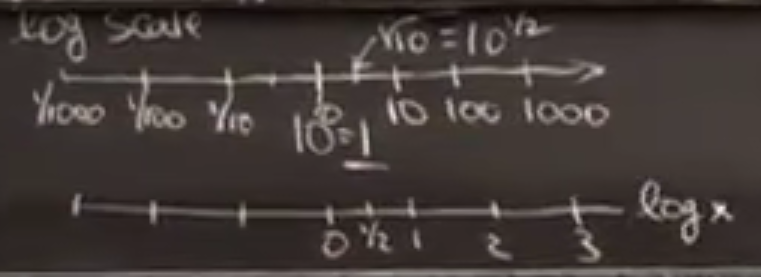 log scale
√10 = 10^1/2
1/1000 1/100 1/10 10^0=1 10 100 1000
0 1/2 1 2 3 log x